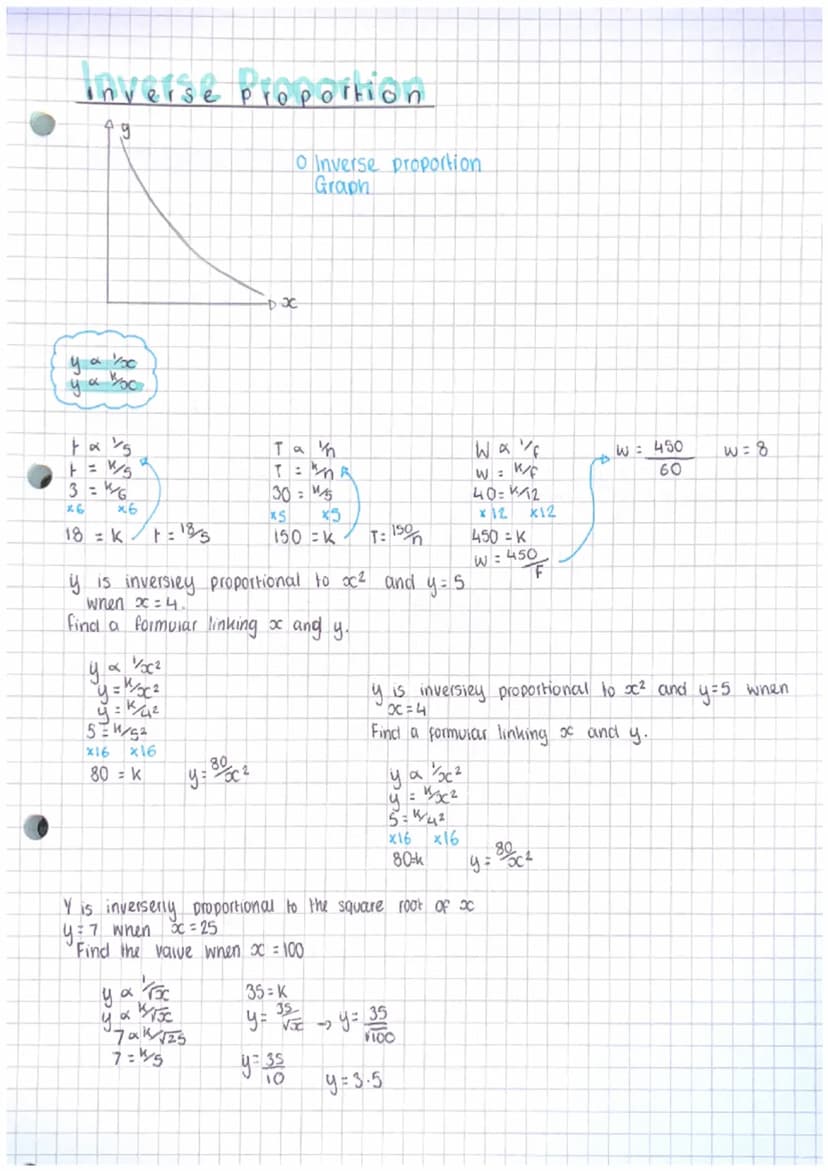 Inverse Proportion
y
o Inverse proportion
Graph
x
y α 1/x
y α k/x
t α 1/s
t = k/s
3 = k/6
x6 x6
18 = k t = 18/s
T α 1/n
T = k/n
30 = k/5
x5 x5
150 = k T = 150/n
W α 1/f
w = k/f
40 = k/12
x12 x12
450 = k
w = 450/F
w = 450/60 w = 8
y is inversley proportional to x² and y = 5
when x = 4.
find a formular linking x and y.
y α 1/x²
y = k/x²
y = k/4²
5 = k/5²
x16 x16
80 = k y = 80/x²
y is inversley proportional to x² and y=5 when
x=4
Find a formular linking x and y.
y α 1/x²
y = k/x²
5 = k/4²
x16 x16
80=k y = 80/x²
Y is inverserly proportional to the square root of x
y = 7 when x = 25
Find the value when x = 100
y α 1/√x
y α k/√x
7 α k/√25
7 = k/5
35 = k
y = 35/√x → y = 35/√100
y = 35/10 y = 3.5